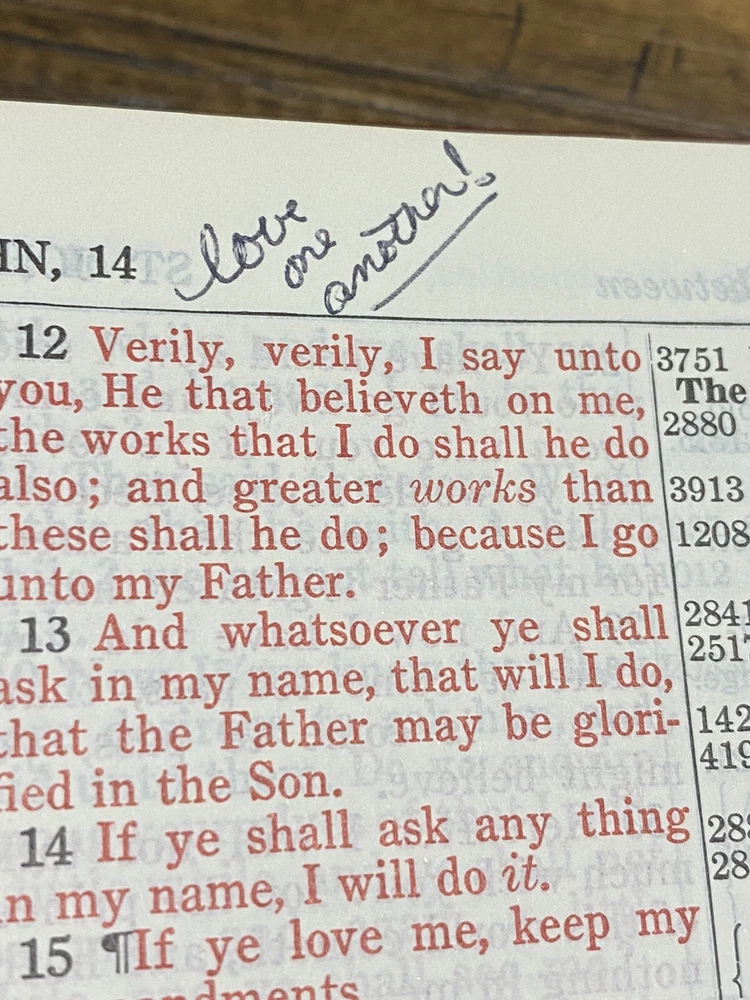 IN, 14
love
one
another!
12 Verily, verily, I say unto
you, He that believeth on me,
the works that I do shall he do
also; and greater works than
these shall he do; because I go
unto my Father.
13 And whatsoever ye shall
ask in my name, that will I do,
that the Father may be glori-
fied in the Son.
14 If ye shall ask any thing
in my name, I will do it.
15 ¶If ye love me, keep my
3751
The
2880
3913
1208
2841
2517
142
419
28
28